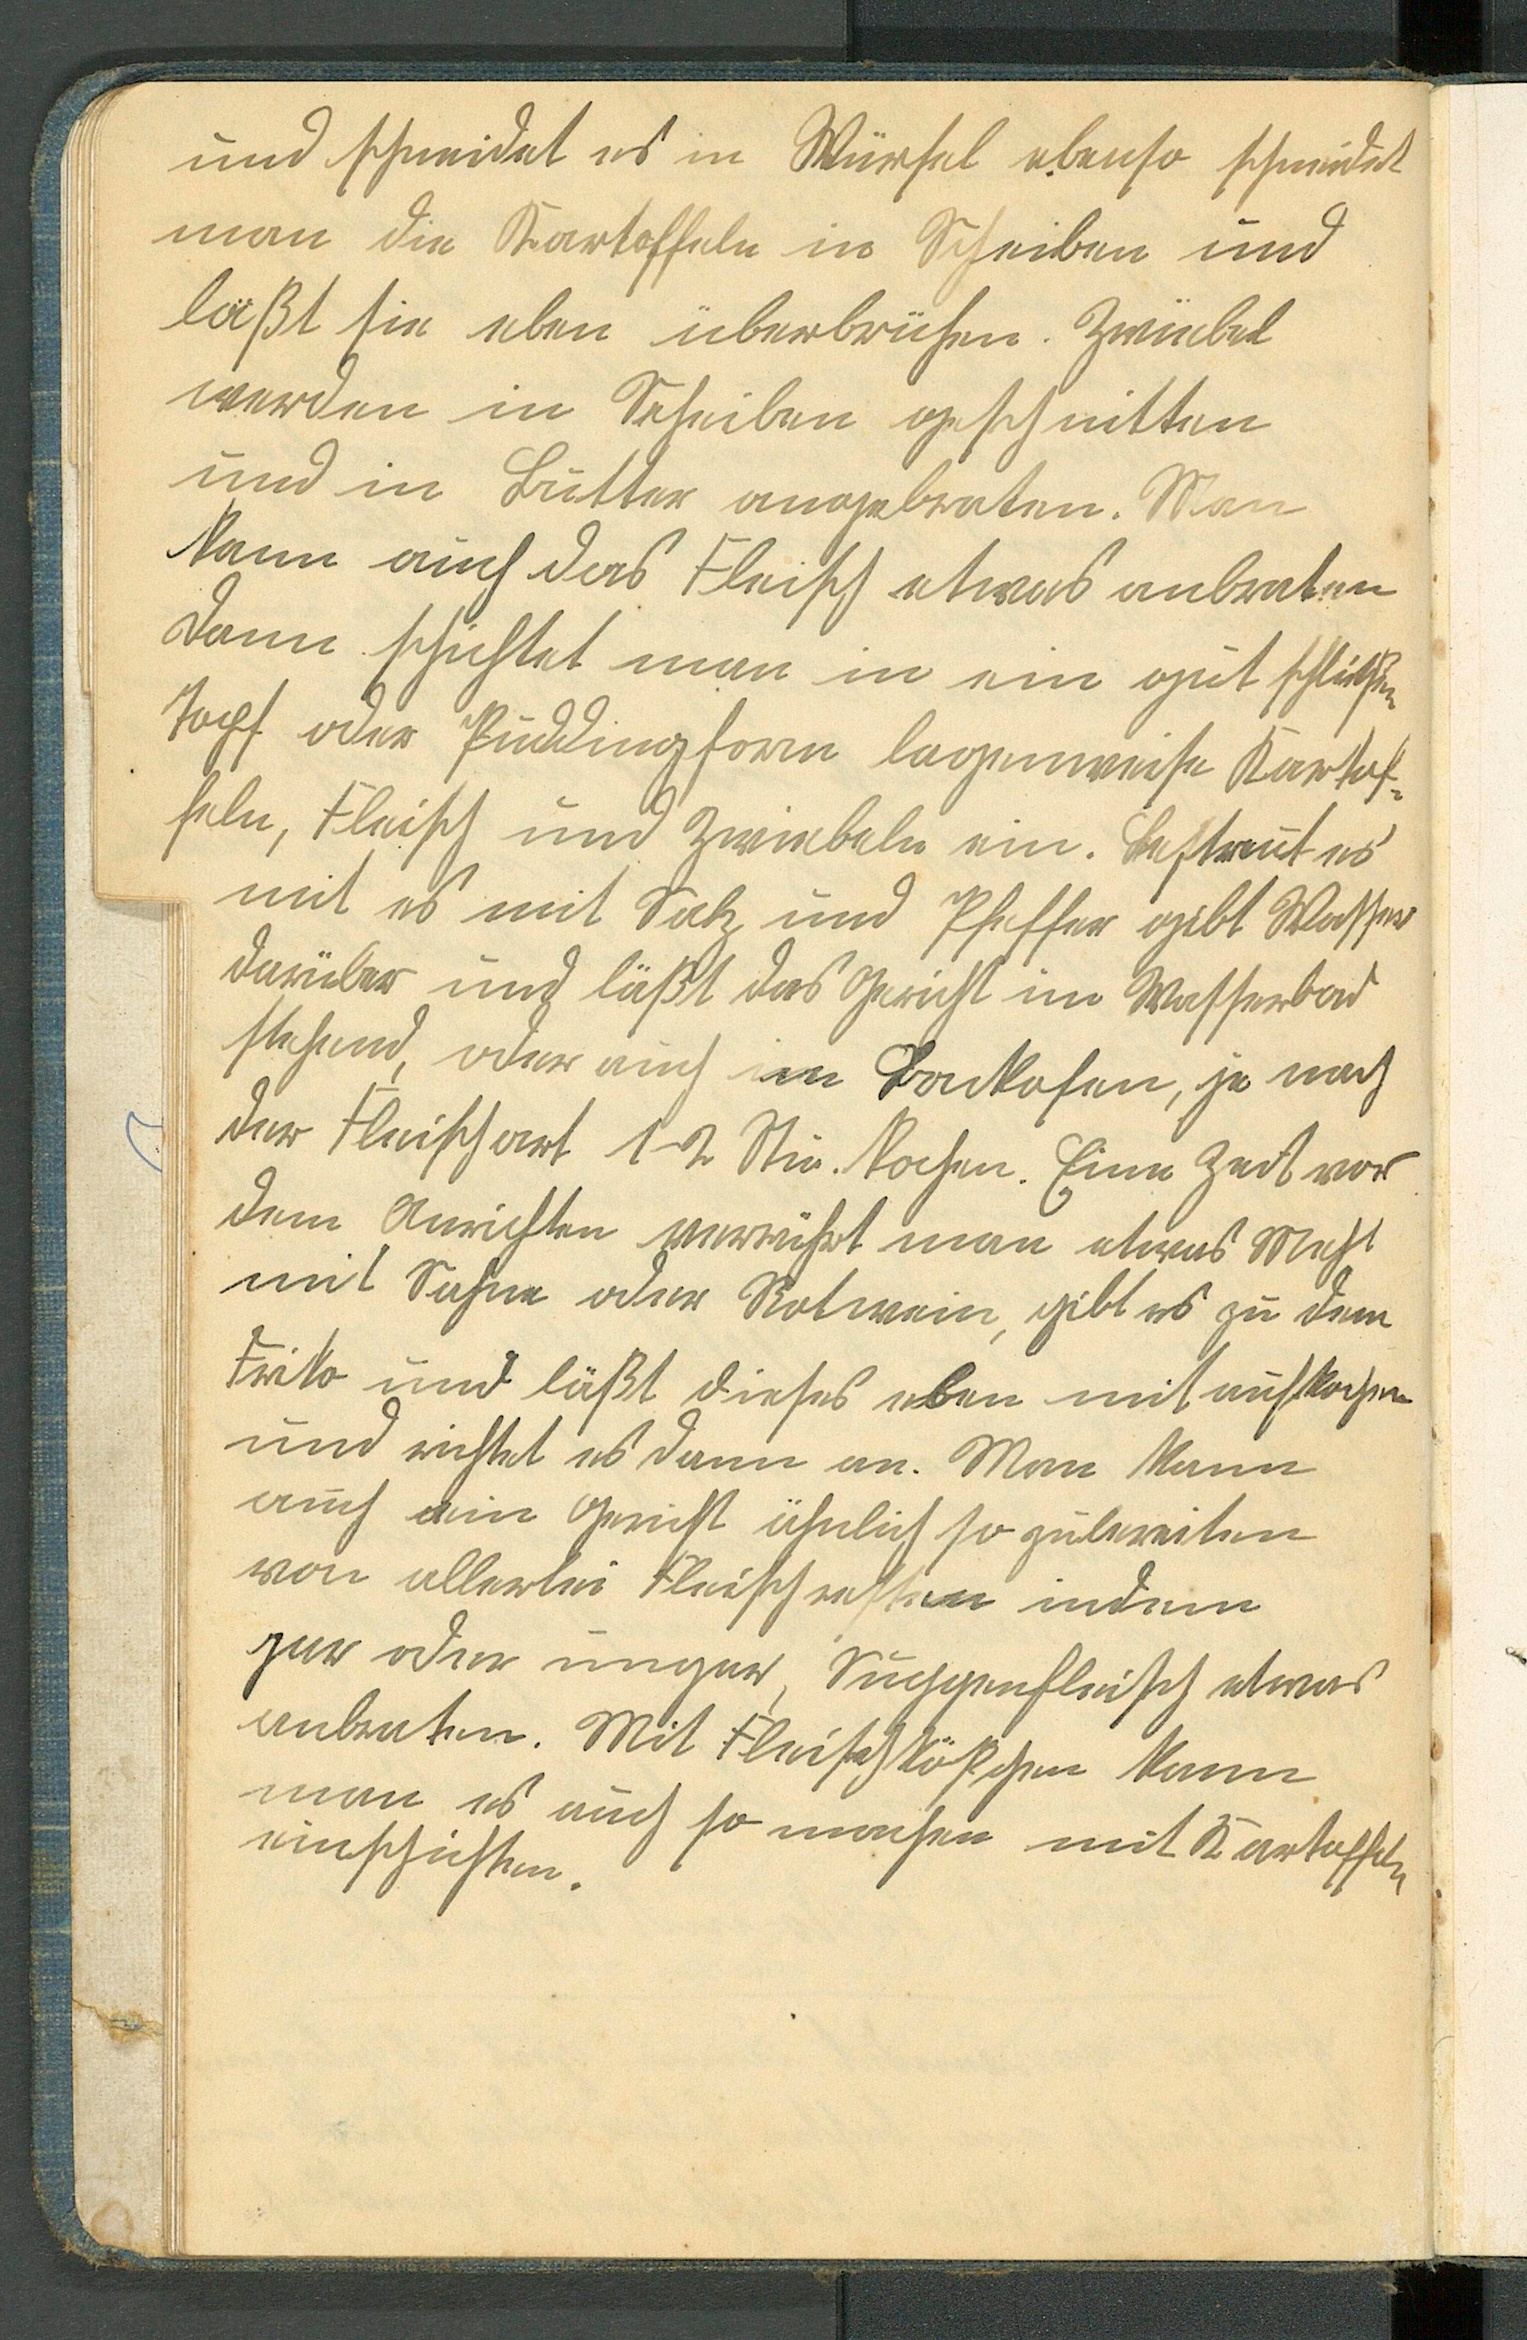 und schneidet es in Würfel ebenso schneidet
man die Kartoffeln in Scheiben und
läßt sie eben überbrühen. Zwiebel
werden in Scheiben geschnitten
und in Butter angebraten. Man
kann auch das Fleisch etwas anbraten
dann schichtet man in ein gut
Topf oder Puddingform lagenweise Kartof-
feln, Fleisch und Zwiebeln ein. Bestreut es
mit es mit Salz und Pfeffer gibt Wasser
darüber und läßt das Gericht im Wasserbad
stehend, oder auch im Backofen, je nach
der Fleischart 1-2 Stu. kochen. Eine Zeit vor
dem Anrichten verrührt man etwas Mehl
mit Sahne oder Rotwein, gibt es zu dem
Friko und läßt dieses eben mit aufkochen
und richtet es dann an. Man kann
auch ein Gericht ähnlich so zubereiten
von allerlei Fleischresten indem
gar oder ungar, Suppenfleisch etwas
anbraten. Mit Fleischklößchen kann
man es auch so machen mit Kartoffeln
einschichten.